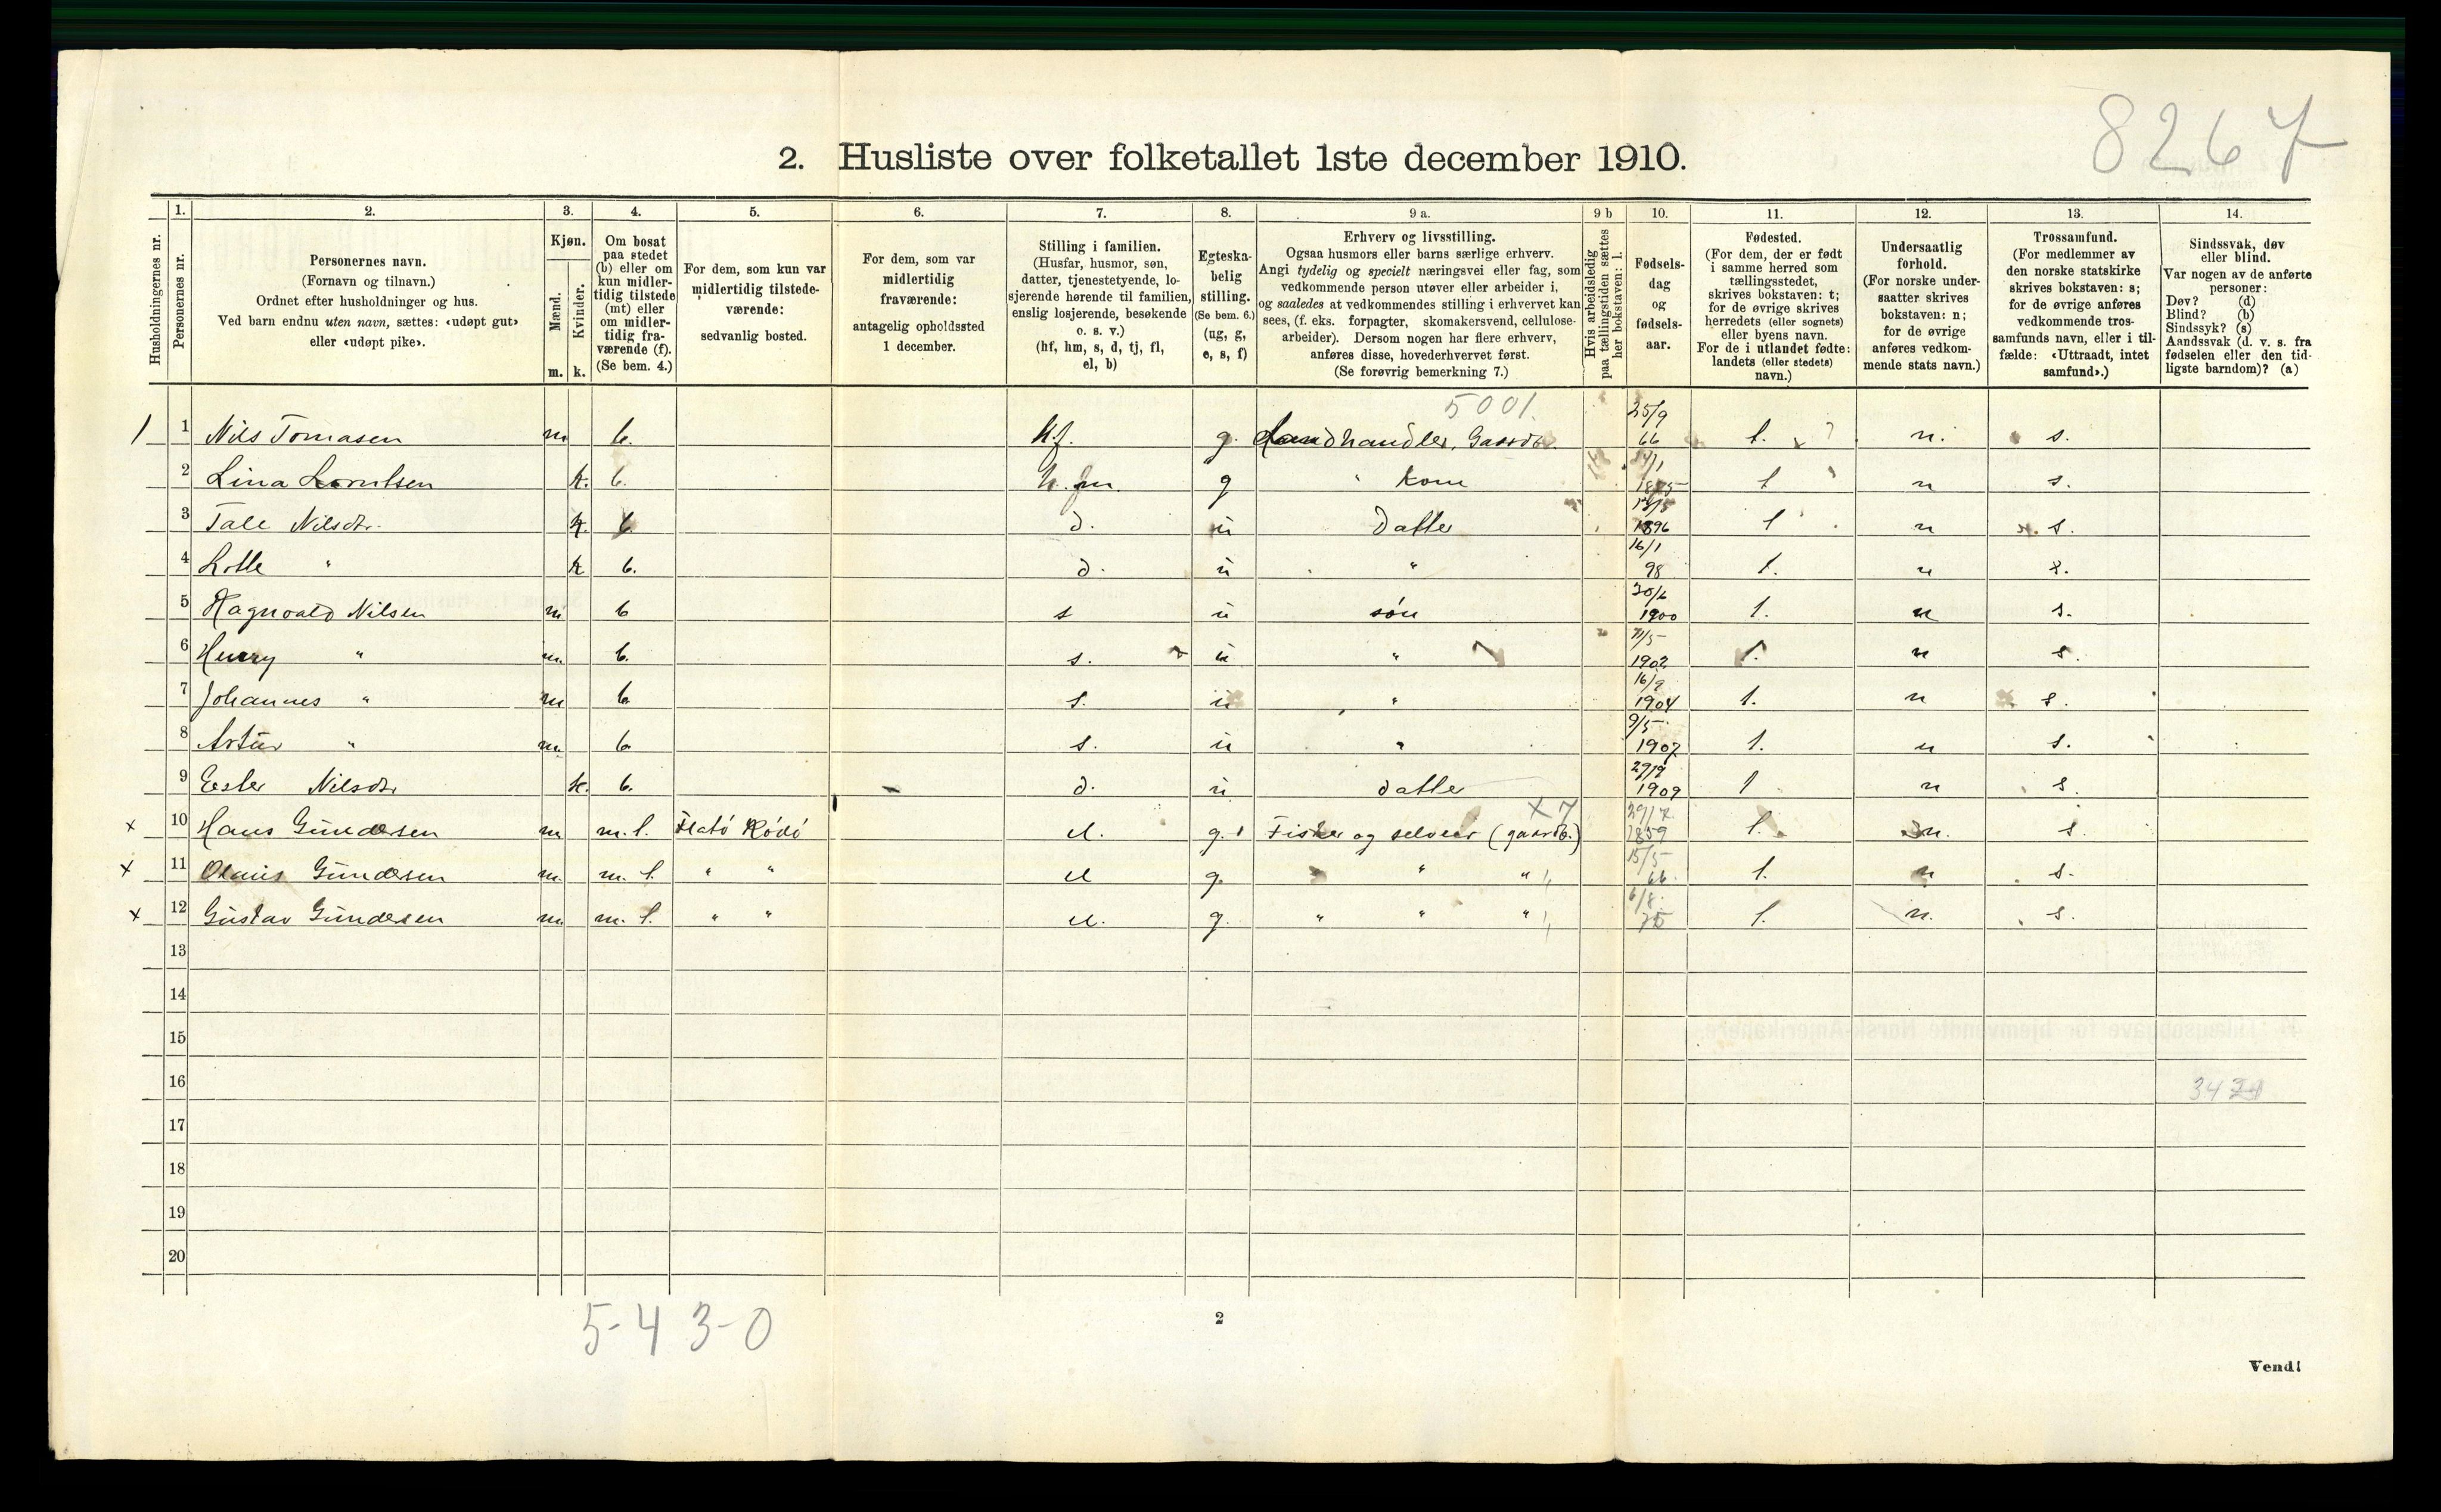 8267
2. Husliste over folketallet 1ste december 1910.
Husholdningernes nr.
1. Personernes nr.
2. Personernes navn.
(Fornavn og tilnavn.)
Ordnet efter husholdninger og hus.
Ved barn endnu uten navn, sættes: «udøpt gut»
eller «udøpt pike».
3. Kjøn.
Mænd. m.
Kvinder. k.
4. Om bosat
paa stedet
(b) eller om
kun midler-
tidig tilstede
(mt) eller
om midler-
tidig fra-
værende (f).
(Se bem. 4.)
5. For dem, som kun var
midlertidig tilstede-
værende:
sedvanlig bosted.
6. For dem, som var
midlertidig
fraværende:
antagelig opholdssted
1 december.
7. Stilling i familien.
(Husfar, husmor, søn,
datter, tjenestetyende, lo-
sjerende hørende til familien,
enslig losjerende, besøkende
o. s. v.)
(hf, hm, s, d, tj, fl,
el, b)
8. Egteska-
belig
stilling.
(Se bem. 6.)
(ug, g,
e, s, f)
9 a. Erhverv og livsstilling.
Ogsaa husmors eller barns særlige erhverv.
Angi tydelig og specielt næringsvei eller fag, som
vedkommende person utøver eller arbeider i,
og saaledes at vedkommendes stilling i erhvervet kan
sees, (f. eks. forpagter, skomakersvend, cellulose-
arbeider). Dersom nogen har flere erhverv,
anføres disse, hovederhvervet først.
(Se forøvrig bemerkning 7.)
9 b Hvis arbeidsledig
paa tællingstiden sættes
her bokstaven: l.
10. Fødsels-
dag
og
fødsels-
aar.
11. Fødested.
(For dem, der er født
i samme herred som
tællingsstedet,
skrives bokstaven: t;
for de øvrige skrives
herredets (eller sognets)
eller byens navn.
For de i utlandet fødte:
landets (eller stedets)
navn.)
12. Undersaatlig
forhold.
(For norske under-
saatter skrives
bokstaven: n;
for de øvrige
anføres vedkom-
mende stats navn.)
13. Trossamfund.
(For medlemmer av
den norske statskirke
skrives bokstaven: s;
for de øvrige anføres
vedkommende tros-
samfunds navn, eller i til-
fælde: «Uttraadt, intet
samfund».)
14. Sindssvak, døv
eller blind.
Var nogen av de anførte
personer:
Døv? (d)
Blind? (b)
Sindssyk? (s)
Aandssvak (d. v. s. fra
fødselen eller den tid-
ligste barndom)? (a)
5001.
1 1 Nils Tomasen m b. hf. g. Landhandler, Gaardb. 25/9 66 t. n. s.
2 Lina Lorntsen k. b. h.m. g " kone 1875 t n s.
3 Tale Nilsdtr. k. b. d. u datter 1896 t n s.
4 Lotte " k b. d. u " 16/1 98 t. n s.
5 Ragnvald Nilsen m b s u søn 30/6 1900 t. n s.
6 Henry " m. b. s. u " 1902 t. n s.
7 Johannes " m b s. u " 16/9 1904 t. n s.
8 Artur " m. b s. u " 9/5 1907 t. n s.
9 Ester Nilsdtr k. b. d. u datter 1909 t n s.
x 10 Hans Gundersen m m. t. Flatö Rödö el. g. Fisker og selveier (gaardb.) x 7 29/7 1859 t. n. s.
x 11 Olaus Gundersen m. m. t. " " el g. " " " 15/5 66. t. n s.
x 12 Gustav Gundersen m. m. t. " " el. g. " " " 6/8. 75 t. n. s.
13
14
15
16
17
18
19
20
5-4 3-0
2
Vend!